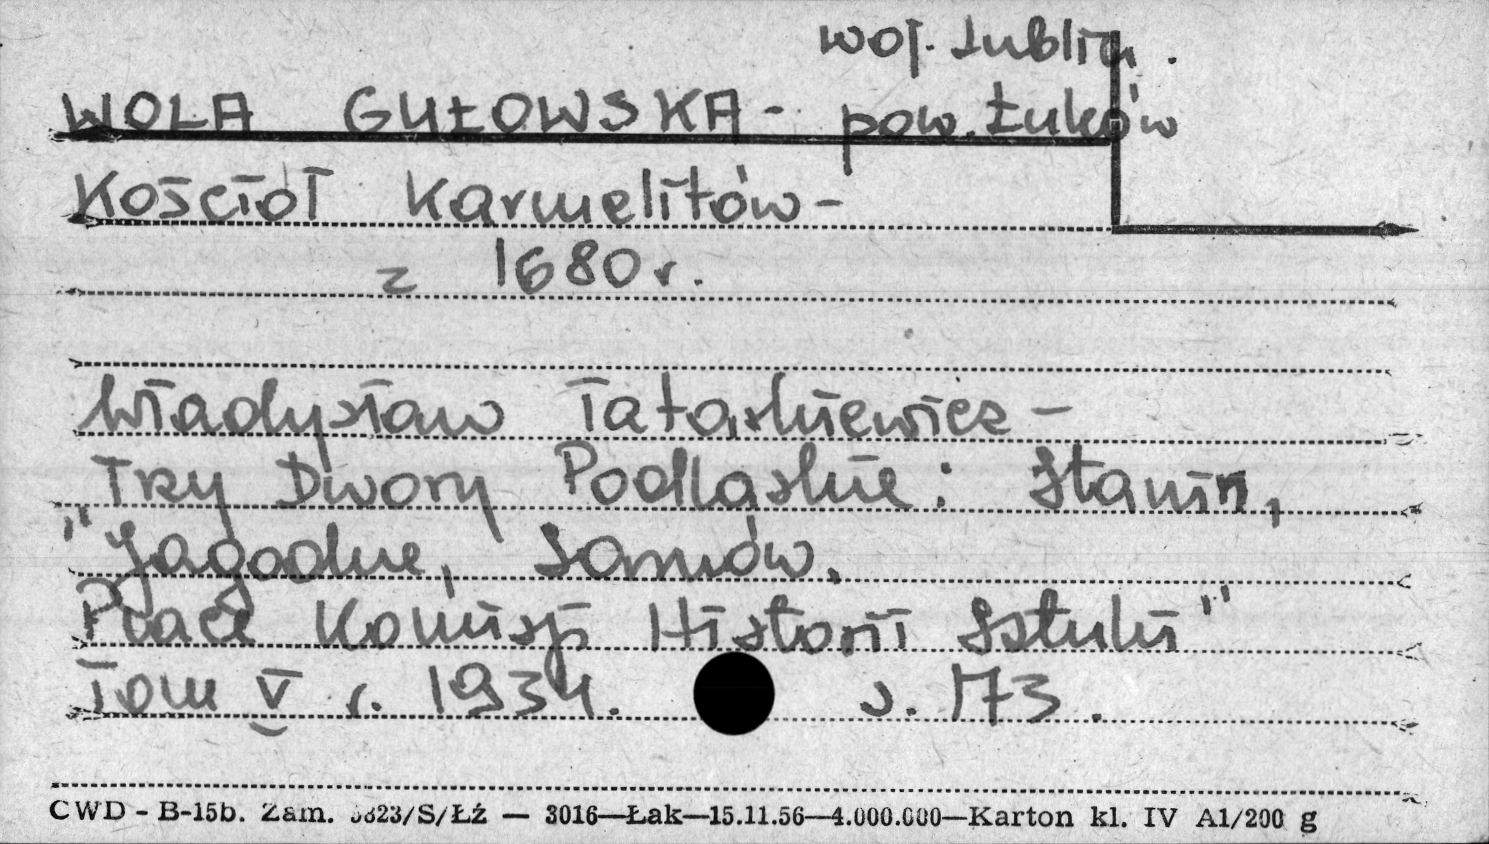 woj. Lublin.
WOLA GUŁOWSKA - pow. Łuków
Kościół Karmelitów -
z 1680 r.
Władysław Tatarkiewicz -
Trzy Dwory Podlaskie: Stanin,
"Jagodne, Sarnów.
Prace Komisji Historii Sztuki"
Tom V r. 1934. s. 173.
CWD - B-15b. Zam. 5823/S/Łż — 3016—Łak—15.11.56—4.000.000—Karton kl. IV A1/200 g